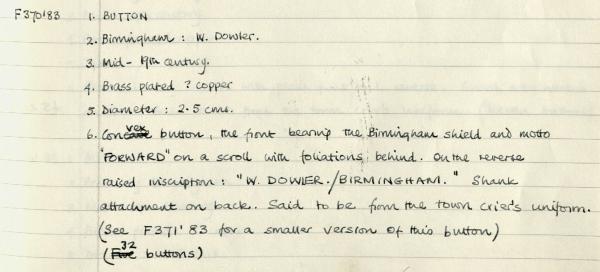 F370'83 1. BUTTON
2. Birmingham : W. Dowler.
3. Mid-19th century.
4. Brass plated ? copper
5. Diameter : 2.5 cms.
6. Convex button, the front bearing the Birmingham shield and motto
"FORWARD" on a scroll with foliations behind. On the reverse
raised inscription : "W. DOWLER./BIRMINGHAM." Shank
attachment on back. Said to be from the town crier's uniform.
(See F371'83 for a smaller version of this button)
(32 buttons)